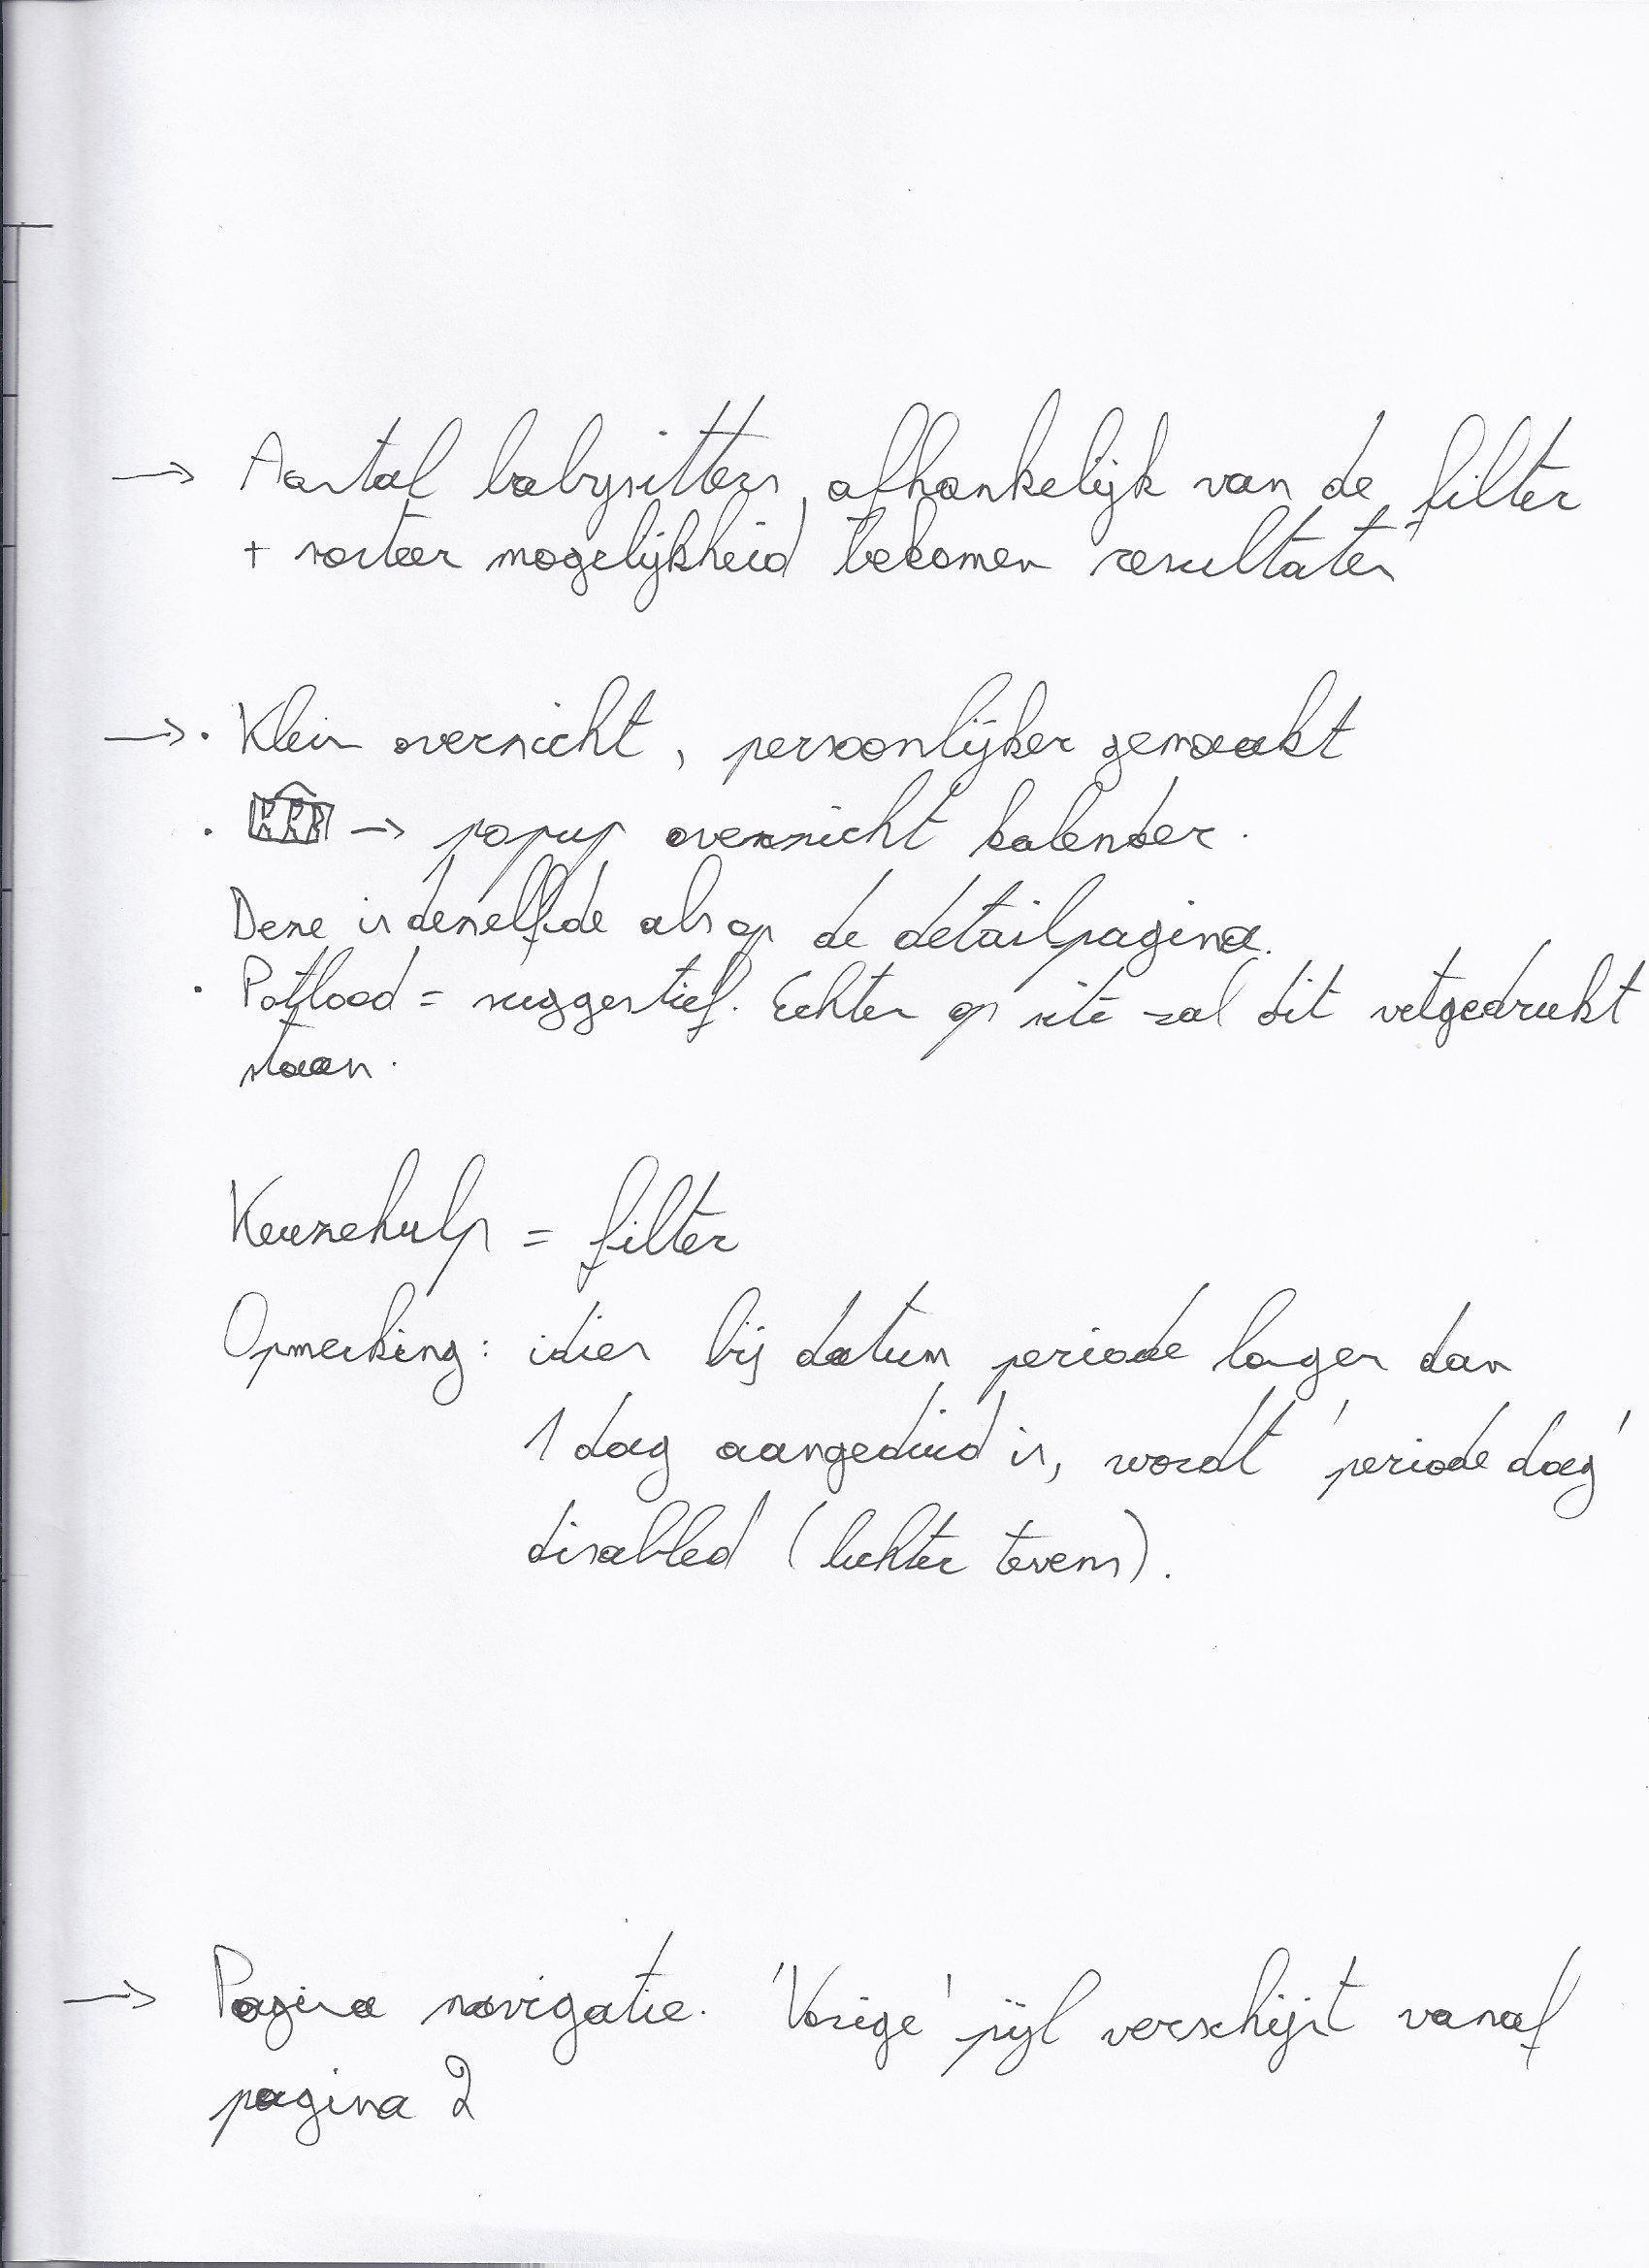 → Aantal babysitters, afhankelijk van de filter
+ sorteer mogelijkheid bekomen resultaten
→ • Klein overzicht, persoonlijker gemaakt
• → popup overzicht kalender.
Deze is dezelfde als op de detailpagina.
• Potlood = suggestief. Echter op site zal dit vetgedrukt
staan.
Keuzehulp = filter
Opmerking: idien bij datum periode langer dan
1 dag aangeduid is, wordt 'periode dag'
disabled (lichter tevens).
→ Pagina navigatie. 'Vorige' pijl verschijnt vanaf
pagina 2